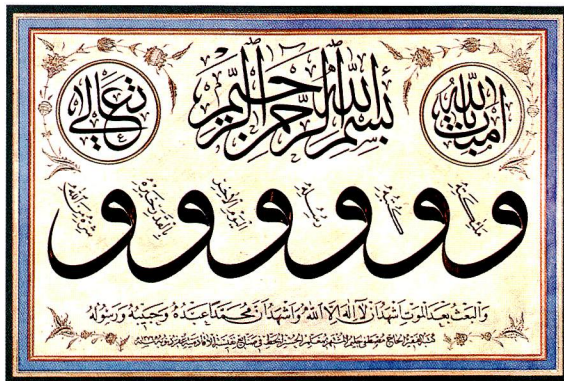 آمنت بالله
بسم الله الرحمن الرحيم
تعالى
و ملائكته و كتبه و رسله و اليوم الآخر و بالقدر خيره و شره من الله
والبعث بعد الموت أشهد أن لا إله إلا الله وأشهد أن محمدا عبده وحبيبه ورسوله